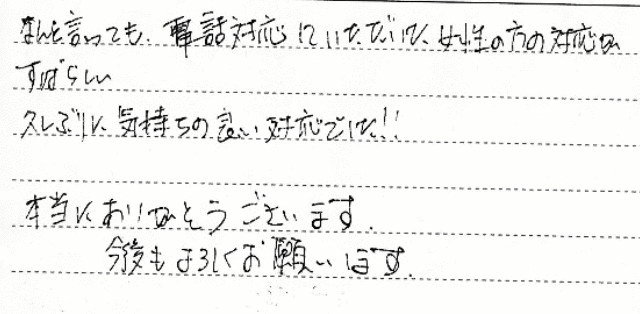 なんと言っても、電話対応していただいた、女性の方の対応が
すばらしい
久しぶりに、気持ちの良い対応でした!!
本当にありがとうございます.
今後もよろしくお願いします.